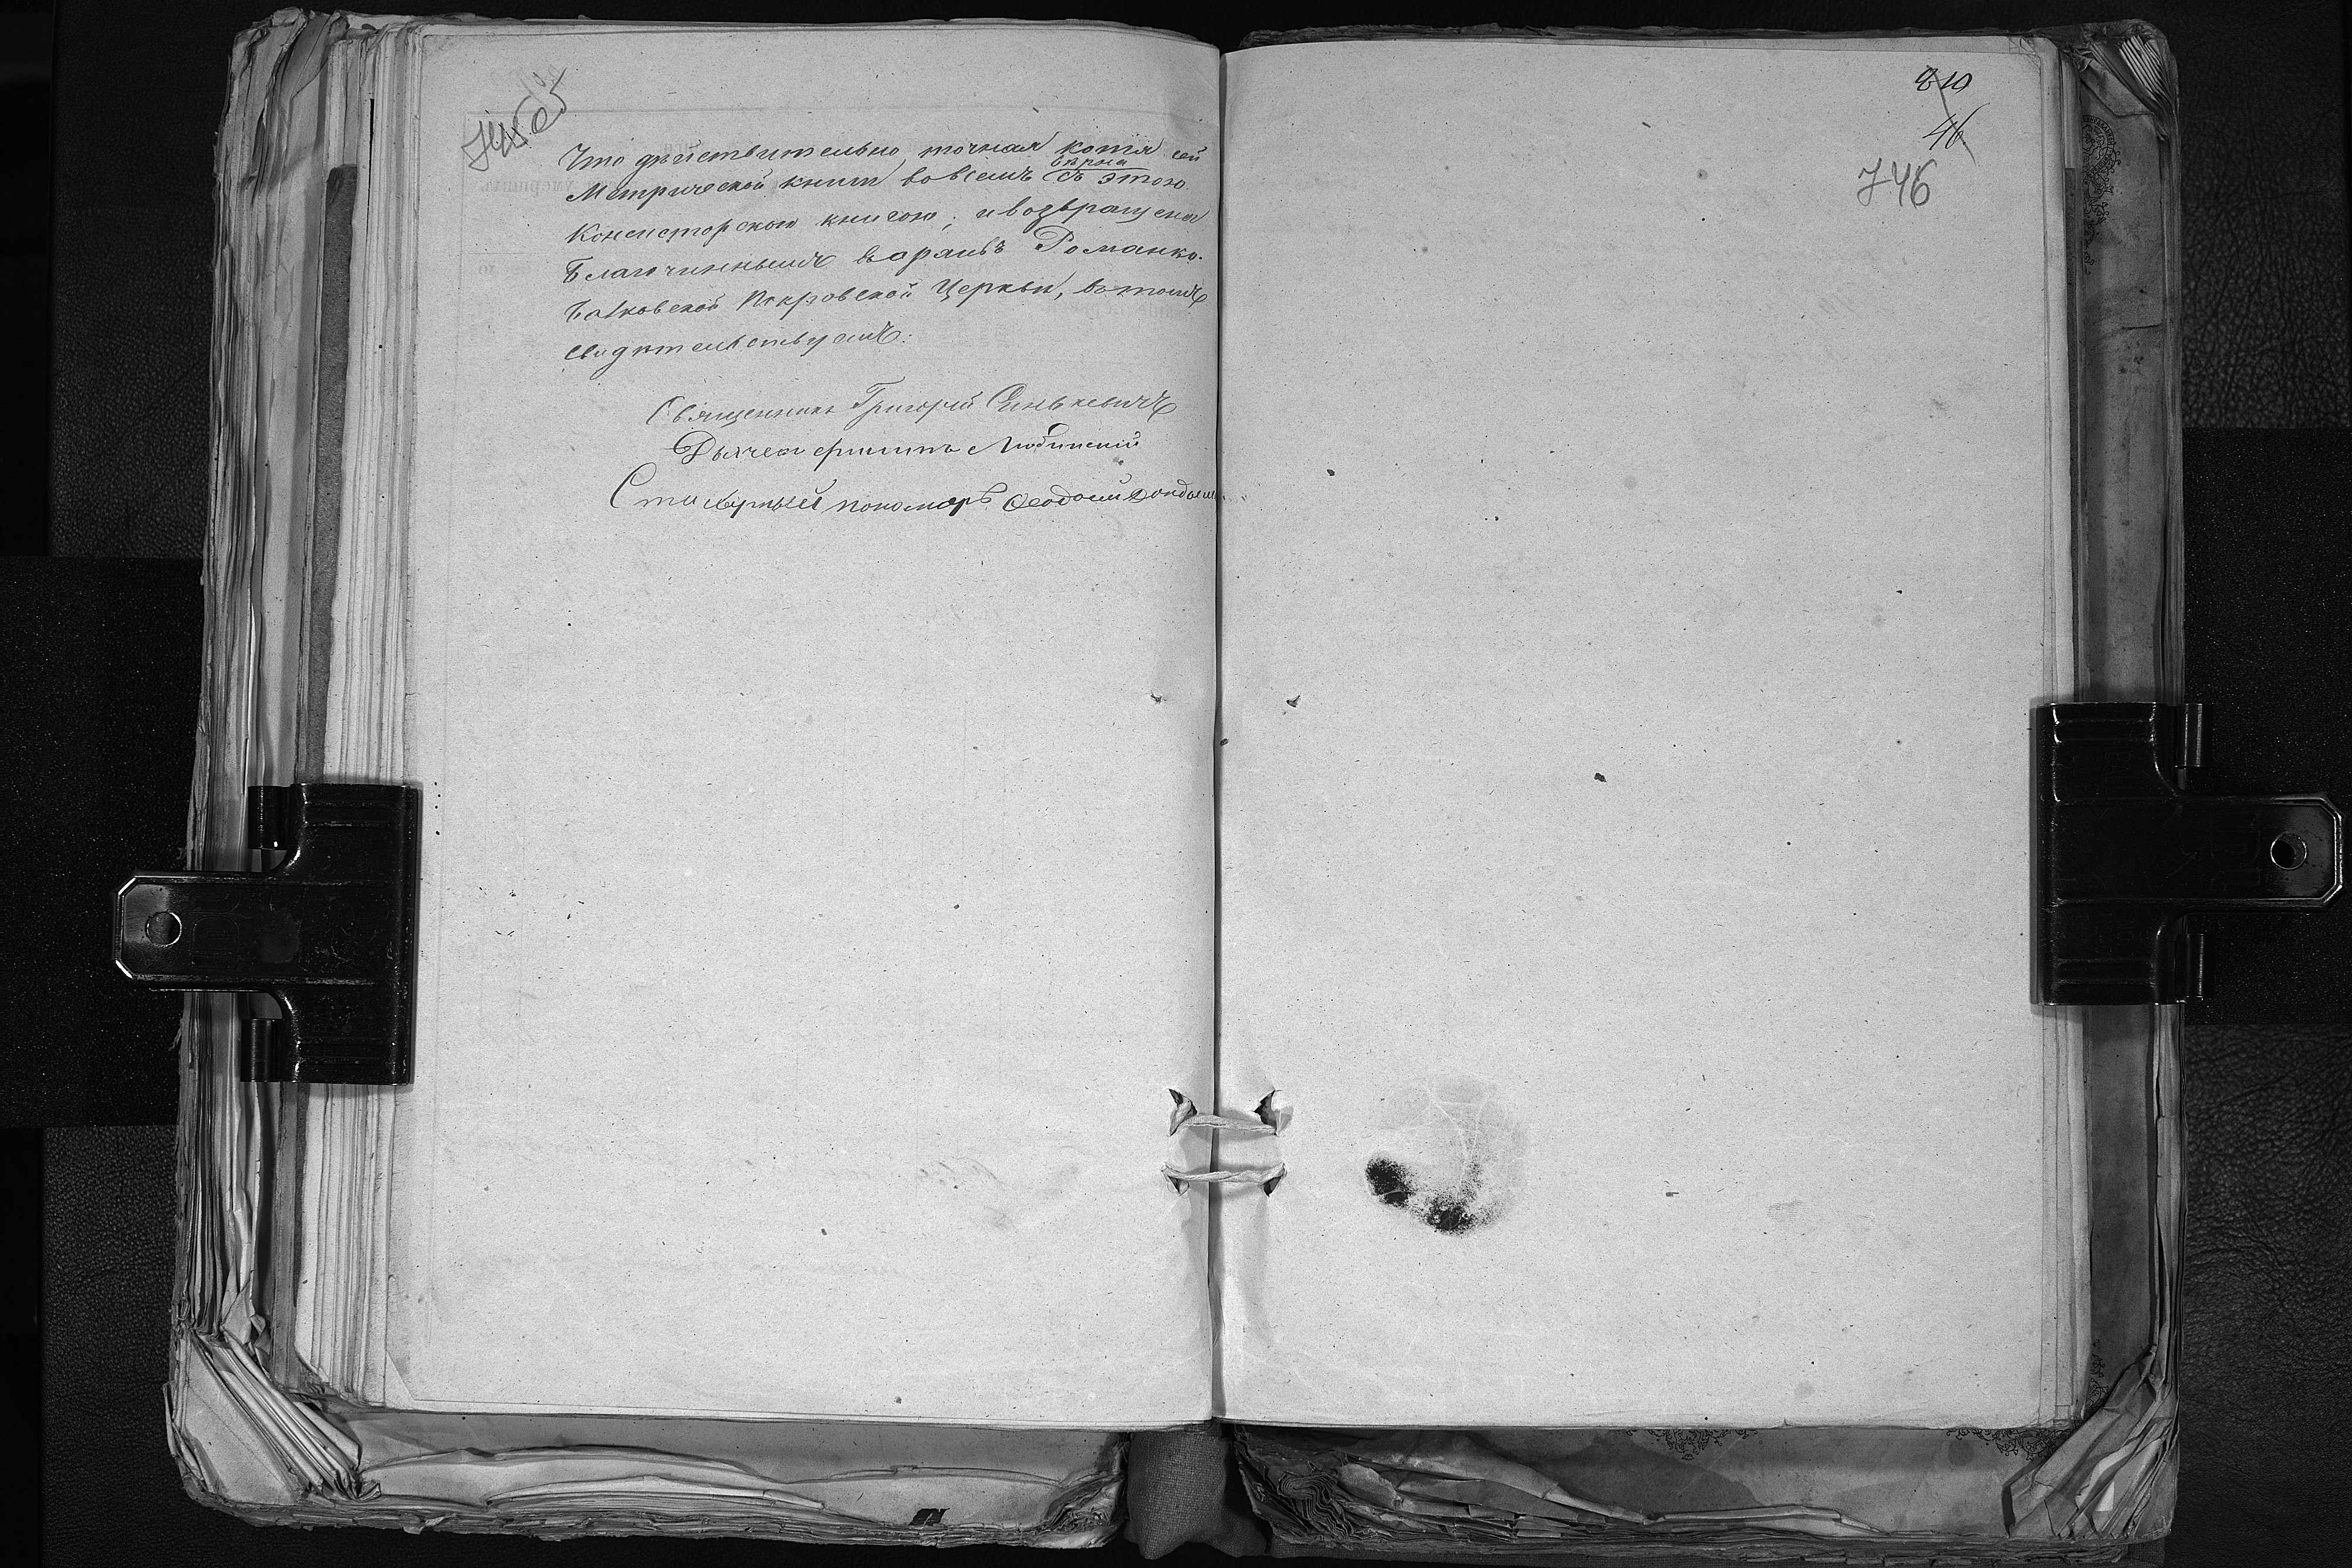 Что дѣйствительно точная копія сей
Метрической книги вовсемъ вѣрна съ этою
Консисторскою книгою, и возвращена
Благочиннымъ вархивъ Романко-
Балковской Покровской Церкви, вотомъ
свидѣтельствуемъ.
Священникъ Григорій Синькевичъ
Дьячекъ Филипъ Любинскій
Стихарный пономарь Ѳеодосій
810
46
746